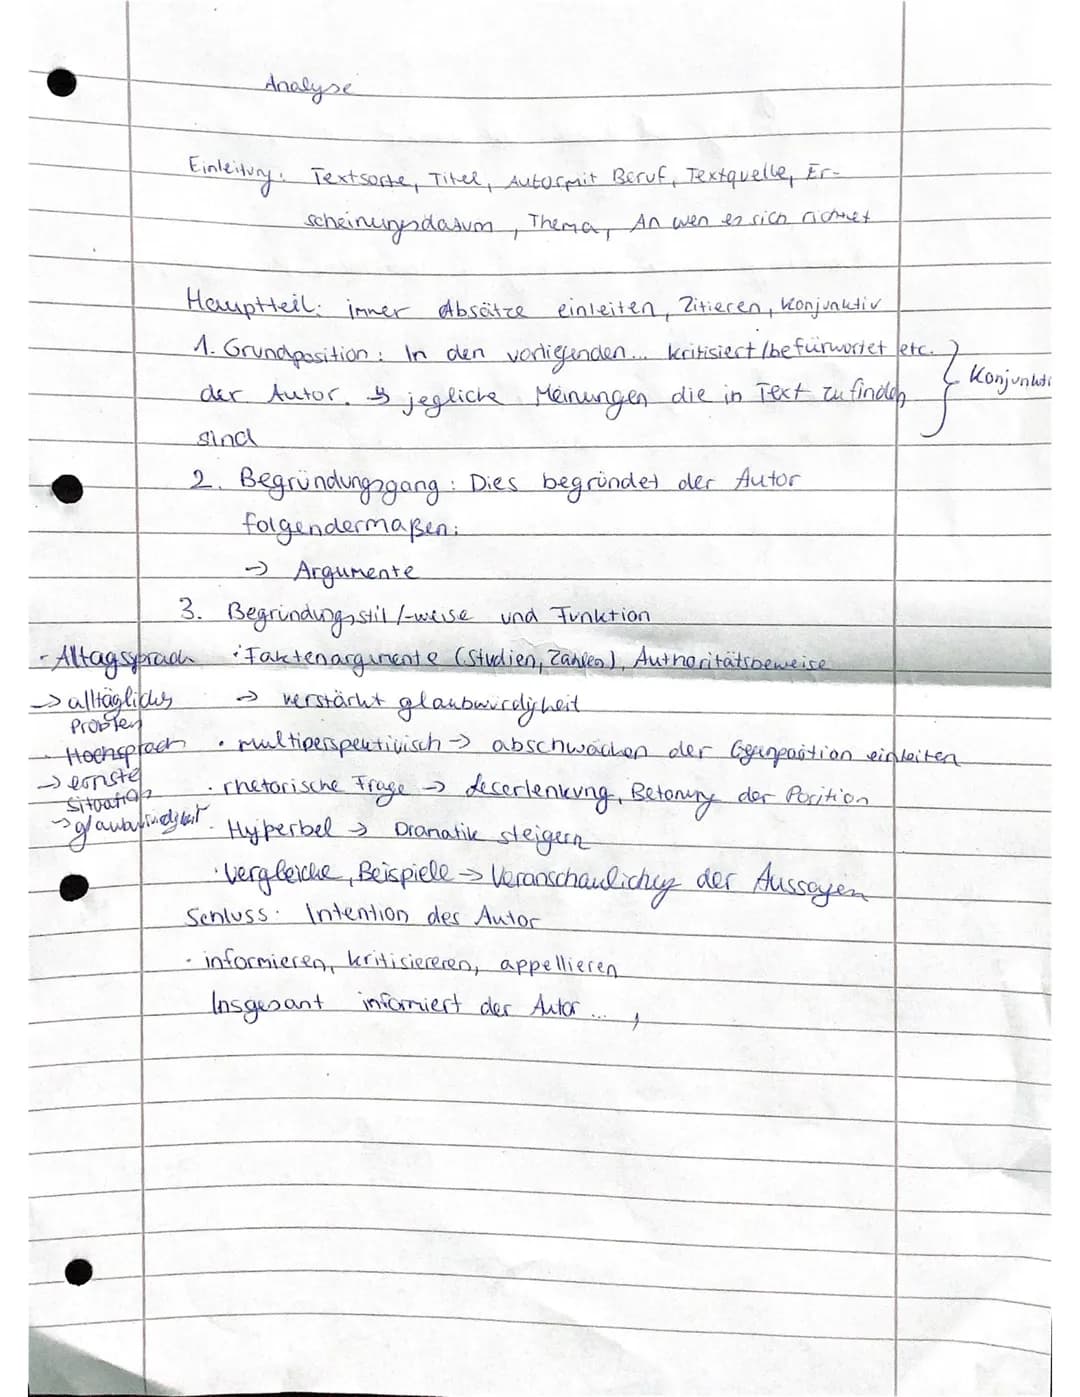 Analyse
Einleitung: Textsorte, Titel, Autor mit Beruf, Textquelle, Er-
scheinungsdatum, Thema, An wen es sich richtet
Hauptteil: immer Absätze einleiten, Zitieren, Konjunktiv
1. Grundposition: In den vorliegenden... kritisiert/befürwortet etc.
der Autor. ↳ jegliche Meinungen die in Text zu finden
sind
Konjunkti
2. Begründungsgang: Dies begründet der Autor
folgendermaßen:
→ Argumente
3. Begründungsstil/-weise und Funktion
· Faktenargumente (Studien, Zahlen), Authoritätsbeweise
→ verstärkt glaubwürdigkeit
· multiperspektivisch → abschwächen der Gegenposition einleiten
· rhetorische Frage → Leserlenkung, Betonung der Position
· Hyperbel → Dramatik steigern
· Vergleiche, Beispiele → Veranschaulichung der Aussagen
- Alltagssprach
→ alltägliches
Problem
- Hochsprach
→ ernste
Situation
→ glaubwürdigkeit
Schluss: Intention des Autor
· informieren, kritisiereren, appellieren
Insgesamt informiert der Autor ... ,